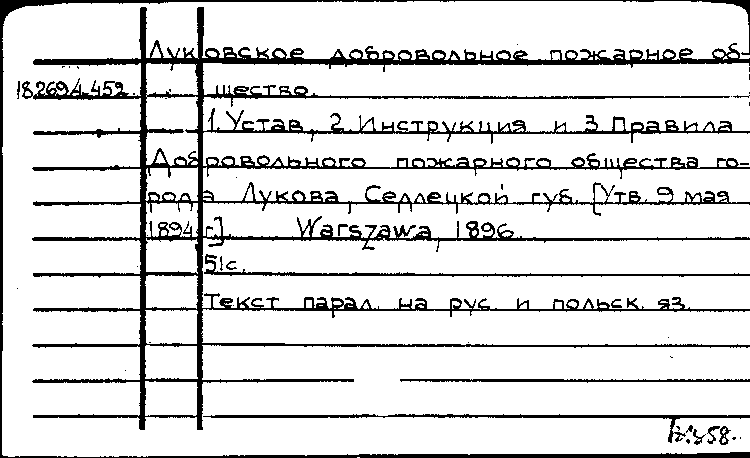 Луковское добровольное пожарное об-
18.269.4.452. щество.
1. Устав, 2. Инструкция и 3 Правила
Добровольного пожарного общества го-
рода Лукова, Седлецкой губ. [Утв. 9 мая
1894 г.]. Warszawa, 1896.
51с.
Текст парал. на рус. и польск. яз.
58.